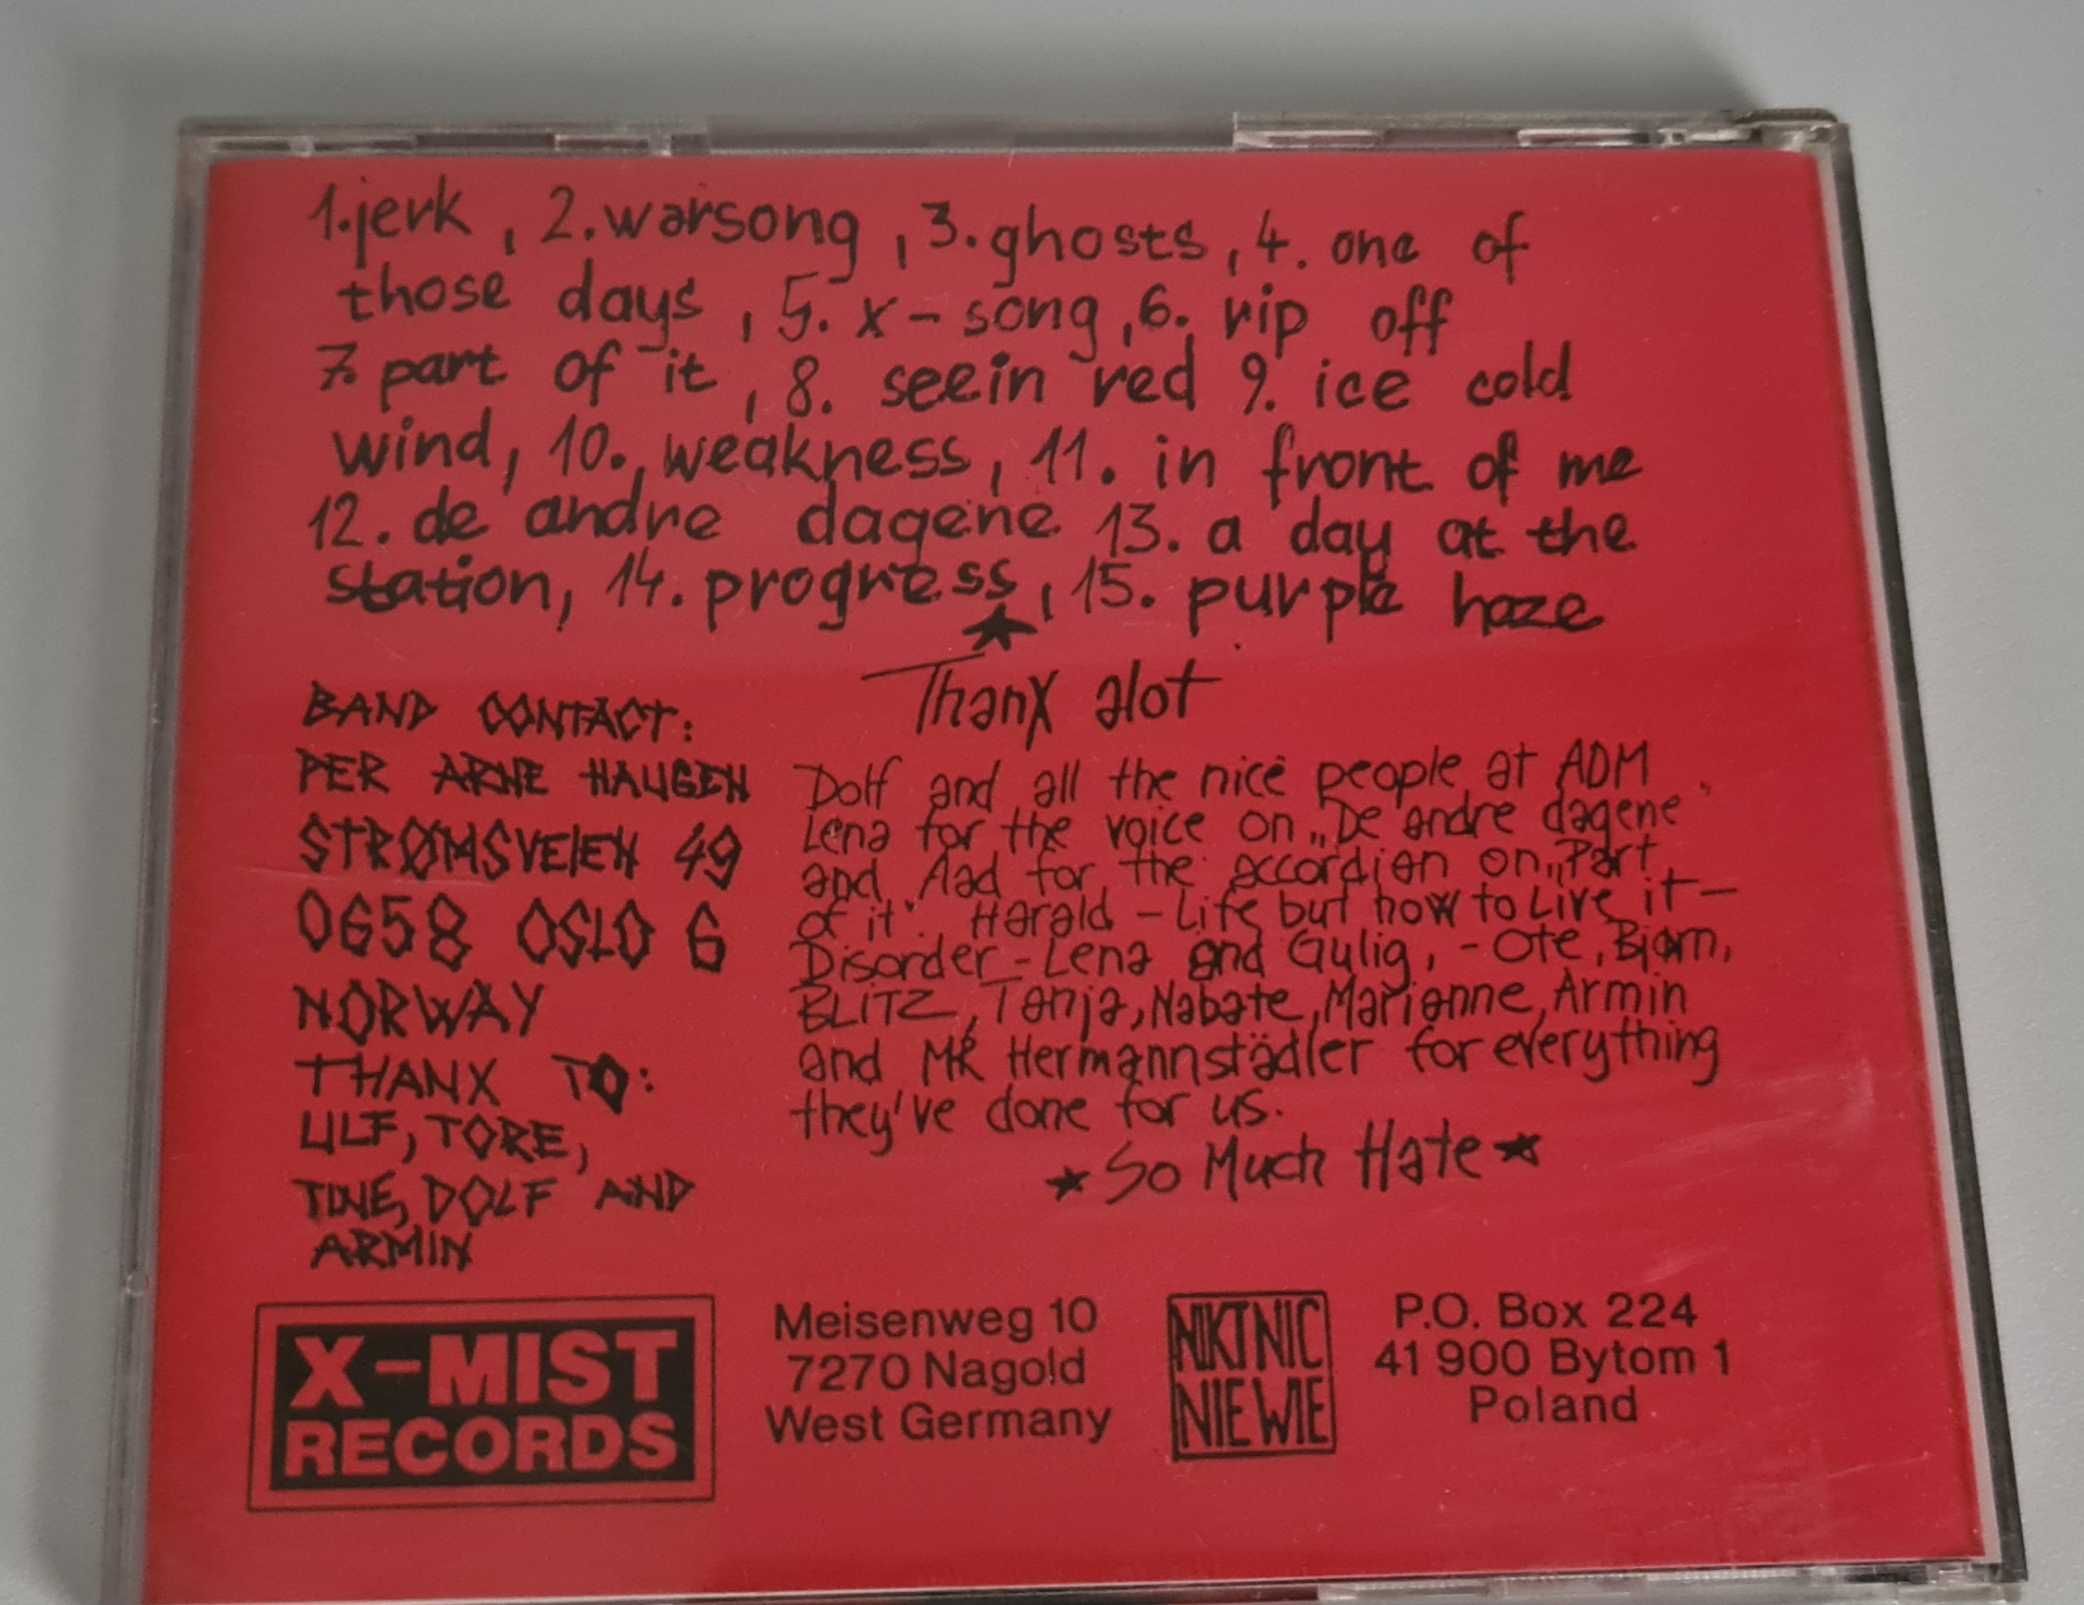 1. jerk, 2. warsong, 3. ghosts, 4. one of
those days, 5. x-song, 6. rip off
7. part of it, 8. seein red 9. ice cold
wind, 10. weakness, 11. in front of me
12. de andre dagene 13. a day at the
station, 14. progress, 15. purple haze
BAND CONTACT:
PER ARNE HAUGEN
STRØMSVEIEN 49
0658 OSLO 6
NORWAY
THANX TO:
ULF, TORE,
TINE, DOLF AND
ARMIN
Thanx alot
Dolf and all the nice people at ADM
Lena for the voice on „De andre dagene"
and Aad for the accordian on „Part
of it". Harald - Life but how to Live it -
Disorder - Lena and Gulig, - Ote, Bjørn,
BLITZ, Tanja, Nabate, Marianne, Armin
and MR Hermannstädler for everything
they've done for us.
★ So Much Hate ★
X-MIST
RECORDS
Meisenweg 10
7270 Nagold
West Germany
NIKT NIC
NIE WIE
P.O. Box 224
41 900 Bytom 1
Poland